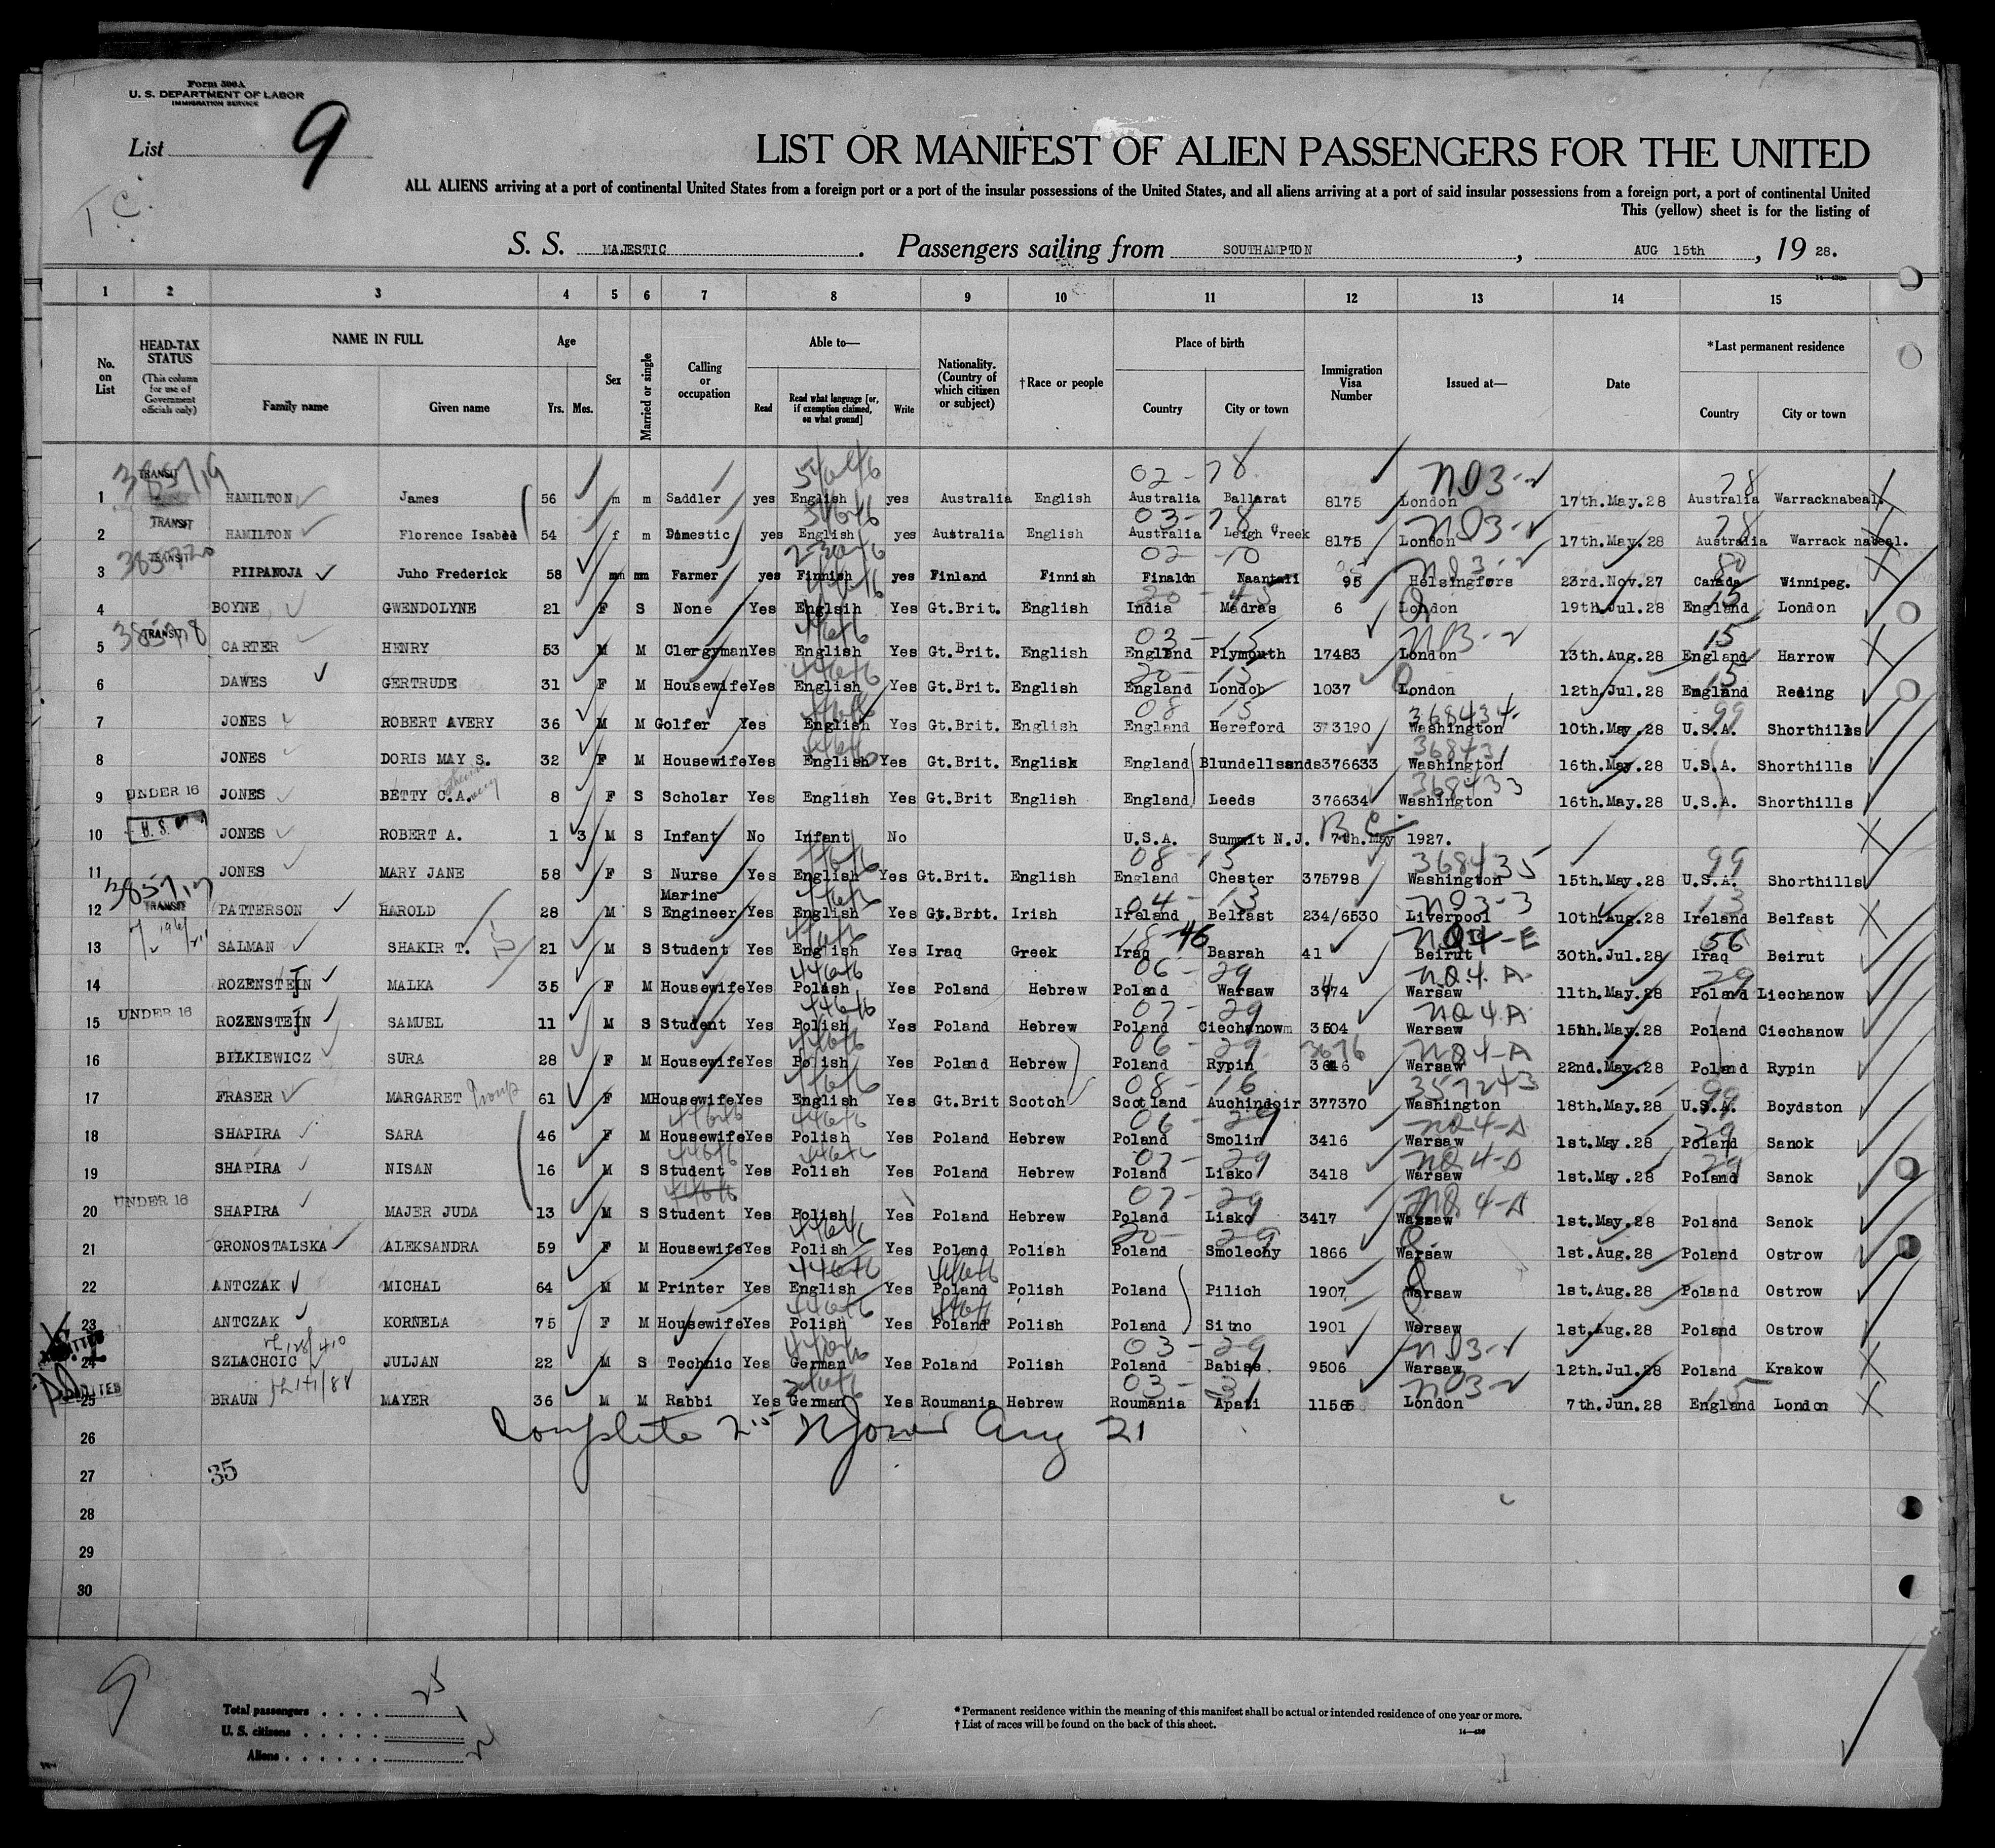 Form 500A
U. S. DEPARTMENT OF LABOR
IMMIGRATION SERVICE
List 9
T C.
LIST OR MANIFEST OF ALIEN PASSENGERS FOR THE UNITED
ALL ALIENS arriving at a port of continental United States from a foreign port or a port of the insular possessions of the United States, and all aliens arriving at a port of said insular possessions from a foreign port, a port of continental United
This (yellow) sheet is for the listing of
S. S. MAJESTIC. Passengers sailing from SOUTHAMPTON, AUG 15th, 19 28.
1 2 3 4 5 6 7 8 9 10 11 12 13 14 15
No. on List HEAD-TAX STATUS (This column for use of Government officials only) NAME IN FULL Family name Given name Age Yrs. Mos. Sex Married or single Calling or occupation Able to— Read Read what language [or, if exemption claimed, on what ground] Write Nationality. (Country of which citizen or subject) †Race or people Place of birth Country City or town Immigration Visa Number Issued at— Date *Last permanent residence Country City or town
1 TRANSIT HAMILTON James 56 m m Saddler yes English yes Australia English Australia Ballarat 8175 London 17th.May.28 Australia Warracknabeal.
2 TRANSIT HAMILTON Florence Isabel 54 f m Domestic yes English yes Australia English Australia Leigh Creek 8175 London 17th.May.28 Australia Warrack nabeal.
3 TRANSIT PIIPANOJA Juho Frederick 58 m m Farmer yes Finnish yes Finland Finnish Finaldn Naantali 95 Helsingfors 23rd.Nov.27 Canada Winnipeg.
4 BOYNE GWENDOLYNE 21 F S None Yes Englsih Yes Gt.Brit. English India Madras 6 London 19th.Jul.28 England London
5 TRANSIT CARTER HENRY 53 M M Clergyman Yes English Yes Gt.Brit. English England Plymouth 17483 London 13th.Aug.28 England Harrow
6 DAWES GERTRUDE 31 F M Housewife Yes English Yes Gt.Brit. English England London 1037 London 12th.Jul.28 England Reding
7 JONES ROBERT AVERY 36 M M Golfer Yes English Yes Gt.Brit. English England Hereford 373190 368434 Washington 10th.May.28 U.S.A. Shorthills
8 JONES DORIS MAY S. 32 F M Housewife Yes English Yes Gt.Brit. English England Blundellsands 376633 Washington 16th.May.28 U.S.A. Shorthills
9 UNDER 16 JONES BETTY C.A. 8 F S Scholar Yes English Yes Gt.Brit English England Leeds 376634 368433 Washington 16th.May.28 U.S.A. Shorthills
10 U.S. JONES ROBERT A. 1 3 M S Infant No Infant No U.S.A. Summit N.J. 7th.May 1927.
11 JONES MARY JANE 58 F S Nurse Yes English Yes Gt.Brit. English England Chester 375798 368435 Washington 15th.May.28 U.S.A. Shorthills
12 TRANSIT PATTERSON HAROLD 28 M S Marine Engineer Yes English Yes Gt.Brit. Irish Ireland Belfast 234/6530 Liverpool 10th.Aug.28 Ireland Belfast
13 SALMAN SHAKIR T. 21 M S Student Yes English Yes Iraq Greek Iraq Basrah 41 Beirut 30th.Jul.28 Iraq Beirut
14 ROZENSTEJN MALKA 35 F M Housewife Yes Polish Yes Poland Hebrew Poland Warsaw 3974 Warsaw 11th.May.28 Poland Liechanow
15 UNDER 16 ROZENSTEJN SAMUEL 11 M S Student Yes Polish Yes Poland Hebrew Poland Ciechanowm 3504 Warsaw 15hh.May.28 Poland Ciechanow
16 BILKIEWICZ SURA 28 F M Housewife Yes Polish Yes Poland Hebrew Poland Rypin 3676 Warsaw 22nd.May.28 Poland Rypin
17 FRASER MARGARET 61 F M Housewife Yes English Yes Gt.Brit Scotch Scotland Auchindoir 377370 357243 Washington 18th.May.28 U.S.A. Boydston
18 SHAPIRA SARA 46 F M Housewife Yes Polish Yes Poland Hebrew Poland Smolin 3416 Warsaw 1st.May.28 Poland Sanok
19 SHAPIRA NISAN 16 M S Student Yes Polish Yes Poland Hebrew Poland Lisko 3418 Warsaw 1st.May.28 Poland Sanok
20 UNDER 16 SHAPIRA MAJER JUDA 13 M S Student Yes Polish Yes Poland Hebrew Poland Lisko 3417 Warsaw 1st.May.28 Poland Sanok
21 GRONOSTALSKA ALEKSANDRA 59 F M Housewife Yes Polish Yes Poland Polish Poland Smolechy 1866 Warsaw 1st.Aug.28 Poland Ostrow
22 ANTCZAK MICHAL 64 M M Printer Yes English Yes Poland Polish Poland Pilich 1907 Warsaw 1st.Aug.28 Poland Ostrow
23 ANTCZAK KORNELA 75 F M Housewife Yes Polish Yes Poland Polish Poland Sitno 1901 Warsaw 1st.Aug.28 Poland Ostrow
24 SZLACHCIC JULJAN 22 M S Technic Yes German Yes Poland Polish Poland Babice 9506 Warsaw 12th.Jul.28 Poland Krakow
25 BRAUN MAYER 36 M M Rabbi Yes German Yes Roumania Hebrew Roumania Apati 1156 London 7th.Jun.28 England London
26 Complete Aug 21
27 35
28
29
30
9
Total passengers . . . . 25
U. S. citizens . . . . . 1
Aliens . . . . . .
*Permanent residence within the meaning of this manifest shall be actual or intended residence of one year or more.
†List of races will be found on the back of this sheet.